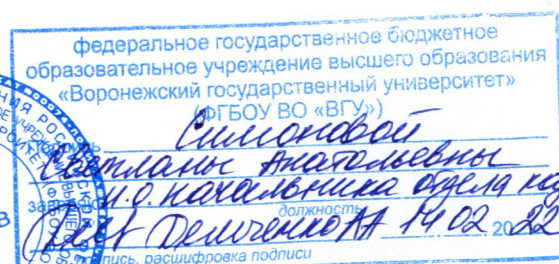 федеральное государственное бюджетное
образовательное учреждение высшего образования
«Воронежский государственный университет»
(ФГБОУ ВО «ВГУ»)
Симоновой
Светланы Анатольевны
и.о. начальника отдела
должность
14 02 2022
подпись, расшифровка подписи